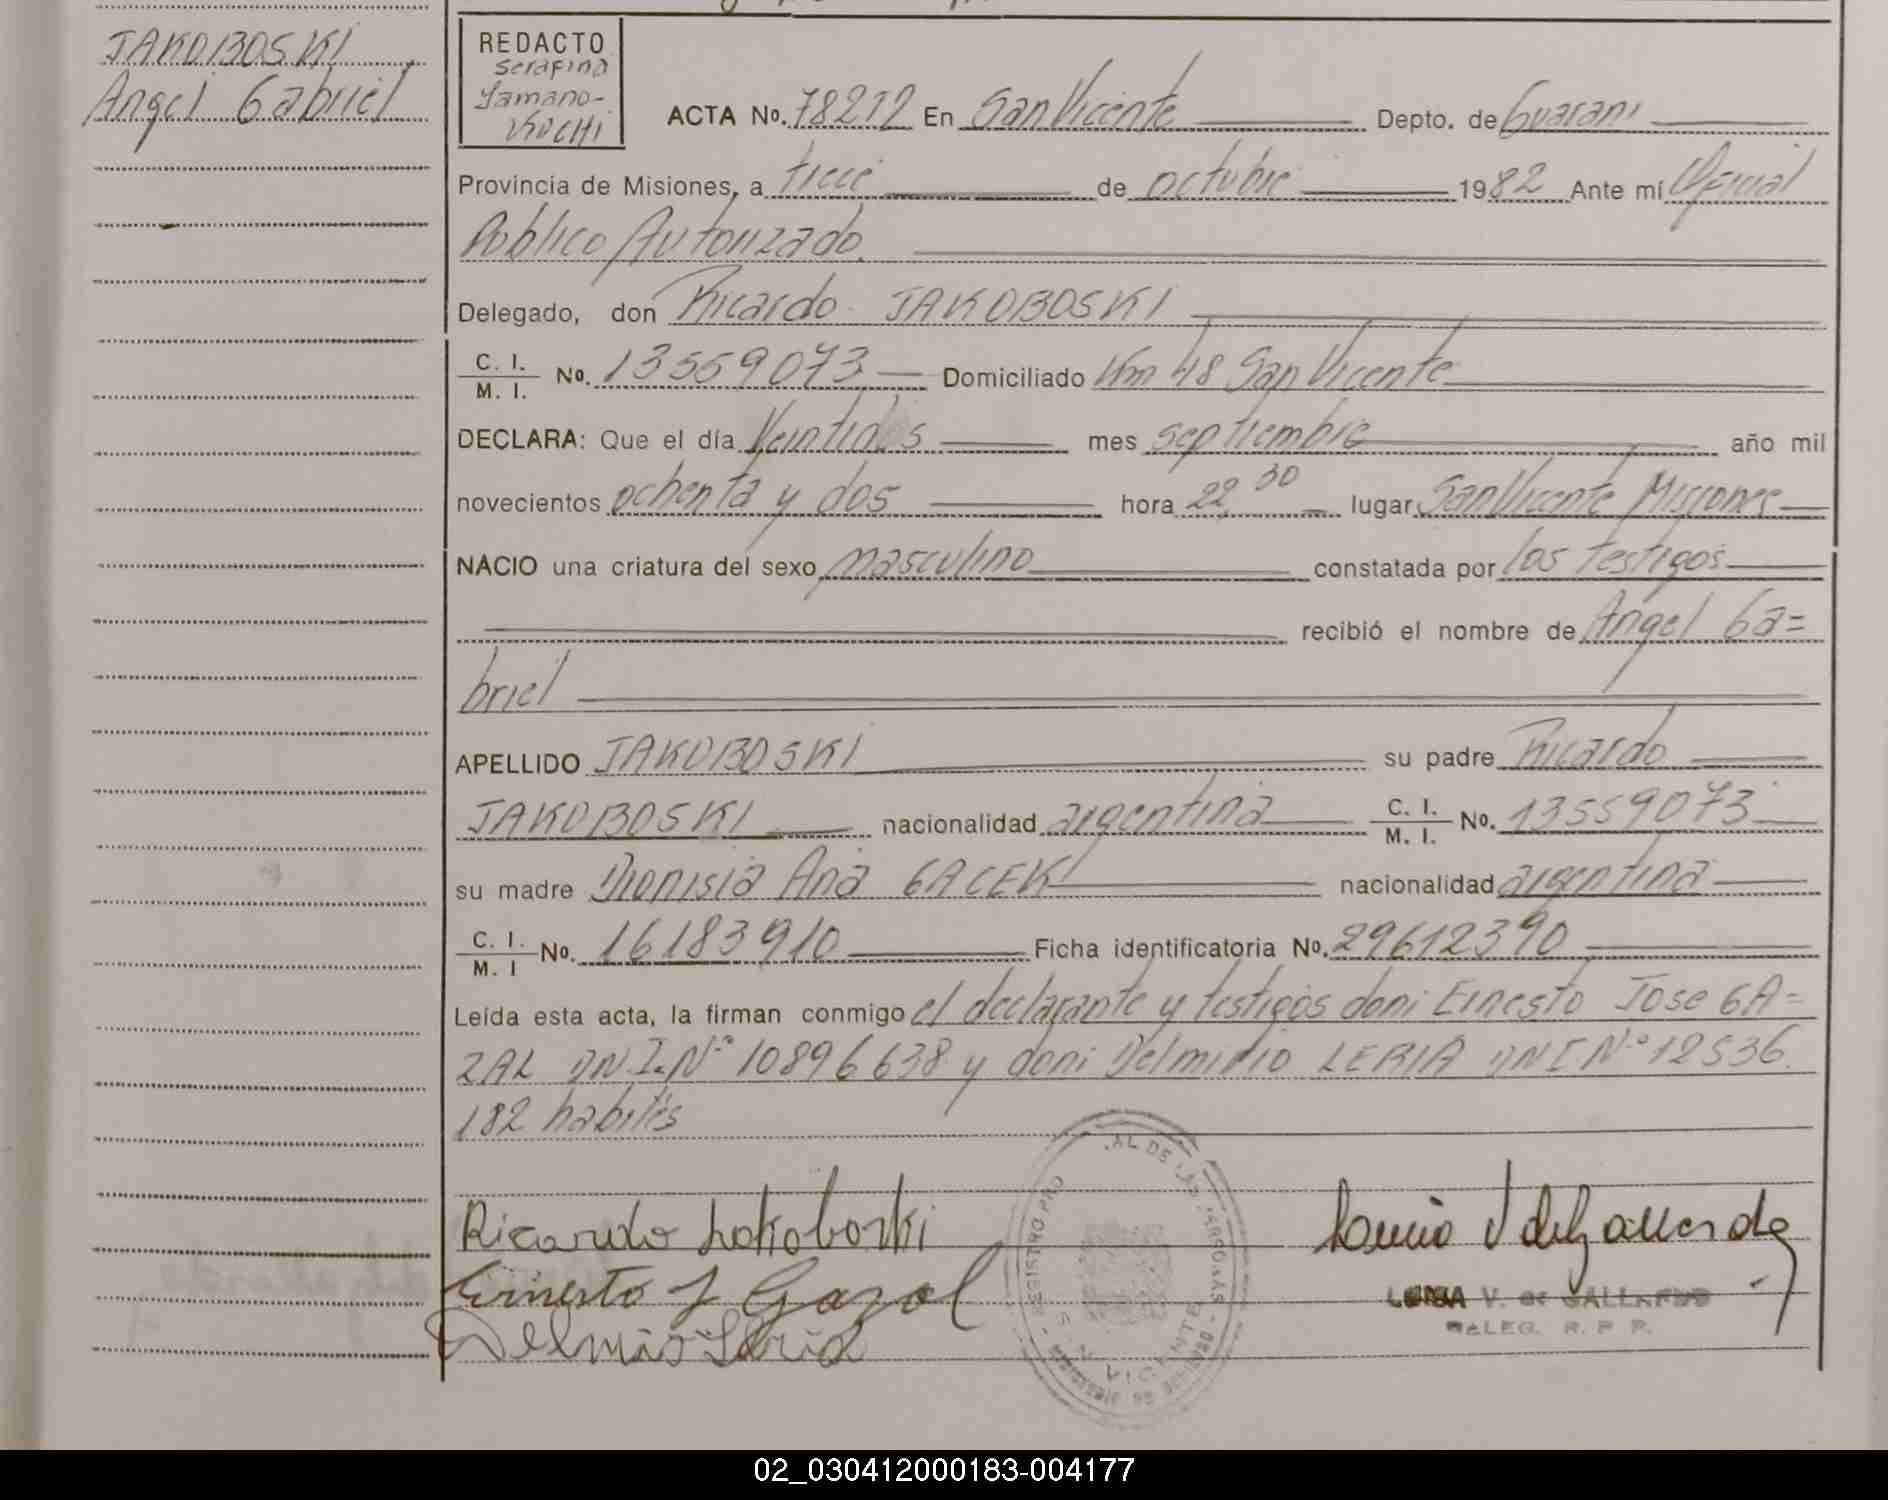 JAKOBOSKI
Angel Gabriel
REDACTO
Serafina
Yamano-
KUCHI
ACTA No. 78212 En San Vicente Depto. de Guarani
Provincia de Misiones, a trece de octubre 1982 Ante mí Oficial
Publico Autorizado.
Delegado, don Ricardo JAKOBOSKI
C. I.
M. I. No. 13559073 Domiciliado Km 48 San Vicente
DECLARA: Que el día Veintidós mes septiembre año mil
novecientos ochenta y dos hora 22,30 lugar San Vicente Misiones
NACIO una criatura del sexo masculino constatada por los testigos
recibió el nombre de Angel Ga=
briel
APELLIDO JAKOBOSKI su padre Ricardo
JAKOBOSKI nacionalidad argentina C. I.
M. I. No. 13559073
su madre Dionisia Ana GACEK nacionalidad argentina
C. I.
M. I No. 16183910 Ficha identificatoria No. 29612390
Leída esta acta, la firman conmigo el declarante y testigos don: Ernesto Jose GA=
ZAL DNI.Nº 10896638 y don: Delmirio LERIA DNI Nº 12536.
182 habiles
Ricardo Jakoboski
Ernesto J Gazal
REGISTRO PRO AL DE LAS PERSONAS
SAN VICENTE
V. de GALLARDO
DELEG. R. P. P.
02_030412000183-004177